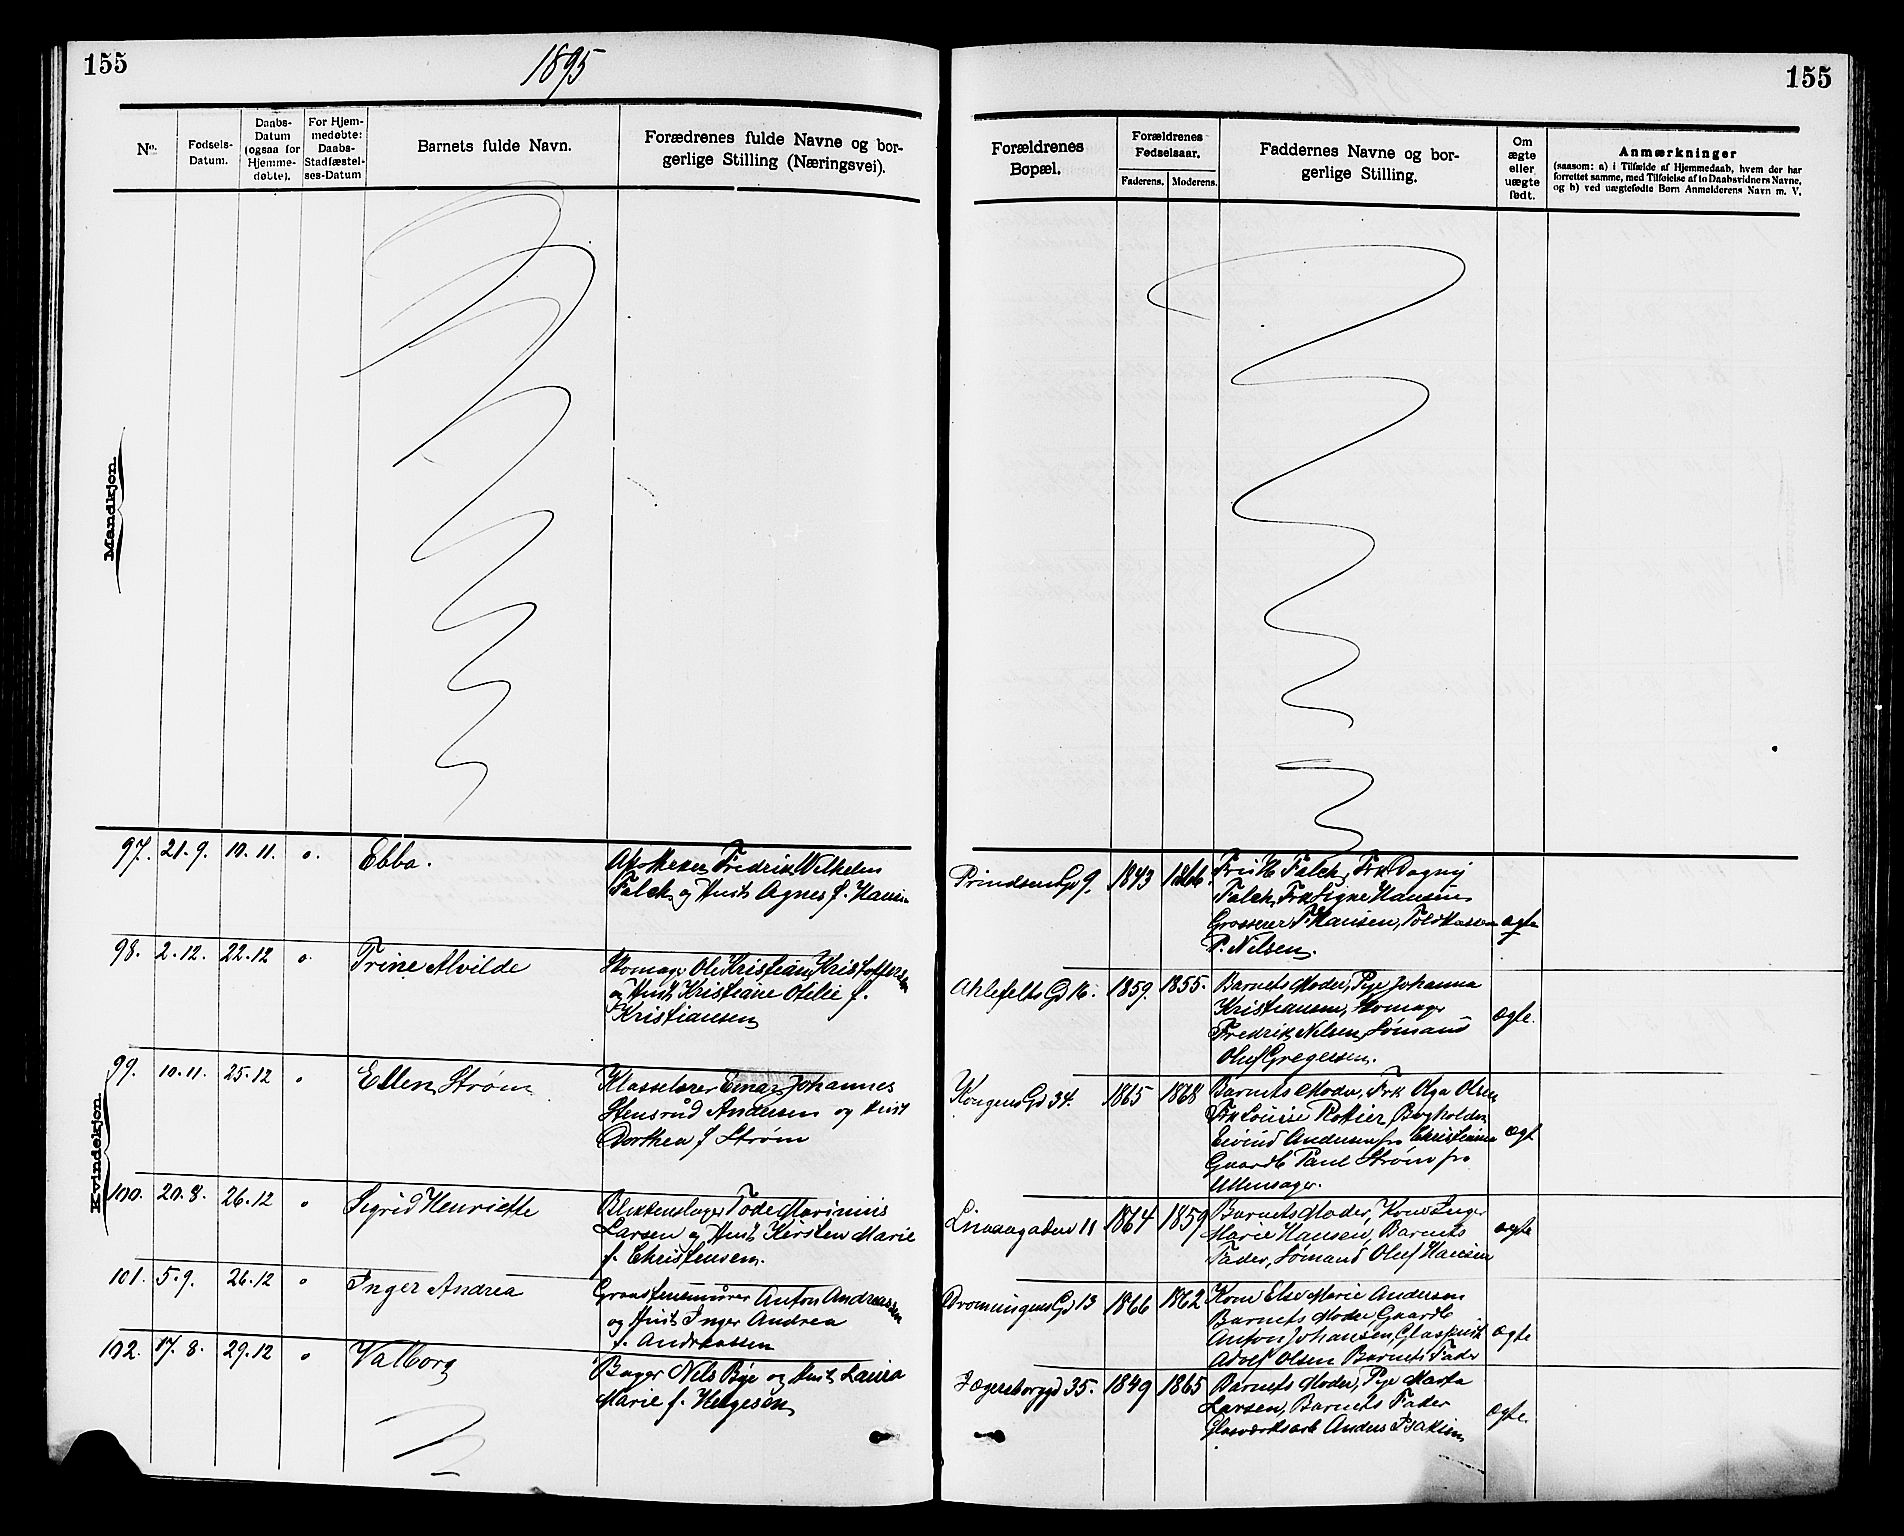 155
1895
155
No.
Fødsels-
Datum.
Daabs-
Datum
(ogsaa for
Hjemme-
døbte).
For Hjem-
medøbte:
Daabs-
Stadfæstel-
ses-Datum
Barnets fulde Navn.
Forædrenes fulde Navne og bor-
gerlige Stilling (Næringsvei).
Forældrenes
Bopæl.
Forældrenes
Fødselsaar.
Faderens.
Moderens.
Faddernes Navne og bor-
gerlige Stilling.
Om
ægte
eller
uægte
født.
Anmærkninger
(saasom: a) i Tilfælde af Hjemmedaab, hvem der har
forrettet samme, med Tilføielse af to Daabsvidners Navne,
og b) ved uægtefødte Børn Anmelderens Navn m. V.
Mandkjøn.
Kvindekjøn.
97. 21.9. 10.11. o. Ebba.
Apotheker Fredrik Wilhelm
Falck og Hust Agnes f. Hansen
Prindsens Gd 9. 1843 1866.
Falck, Frk Dagny
Falck, Frk Signe Hansen
Grosserer Hansen,
P. Nilsen.
ægte
98. 2.12. 22.12 o. Trine Alvilde
Skomager Ole Kristian Kristoffersen
og Hust Kristiane Otelie f.
Kristiansen
Ahlefelts Gd 16. 1859. 1855.
Barnets Moder, Pige Johanna
Kristiansen, Skomager
Fredrik Nilsen, Sømand
Oluf Gregersen.
ægte.
99. 10.11. 25.12 o Ellen Strøm
Klasselærer Einar Johannes
Stensrud Andersen og Hust
Dorthea f Strøm
Kongens Gd 34. 1865 1868
Barnets Moder, Frk Olga Olsen
Frk Louise Bogholder
Eivind Andersen fra Christiania
Gaardb Paul Strøm fra
Ullensager.
ægt
100. 20.8. 26.12 o Sigrid Henriette
Blikkenslager Tode Marinius
Larsen og Hust Kirsten Marie
f. Christensen.
Linaaegaden 11 1864 1859
Barnets Moder, Kone Inger
Marie Hansen, Barnets
Fader, Sømand Oluf Hansen
ægte
101. 5.9. 26.12 o Inger Andrea
Graastensmurer Anton Andreassen
og Hust Inger Andrea
f. Andreassen
Dronningens Gd 13 1866 1862
Kone Else Marie Andersen
Barnets Moder, Gaardb
Anton Johansen,
Adolf Olsen Barnets Fader
ægte
102. 17.8. 29.12 o Valborg
Bager Nils Bye og Hust Laura
Marie f. Helgesen
Jægersborggd 35. 1849 1865
Barnets Moder, Pige Marta
Larsen, Barnets Fader
Glasværksarb Anders Isaksen
ægte.